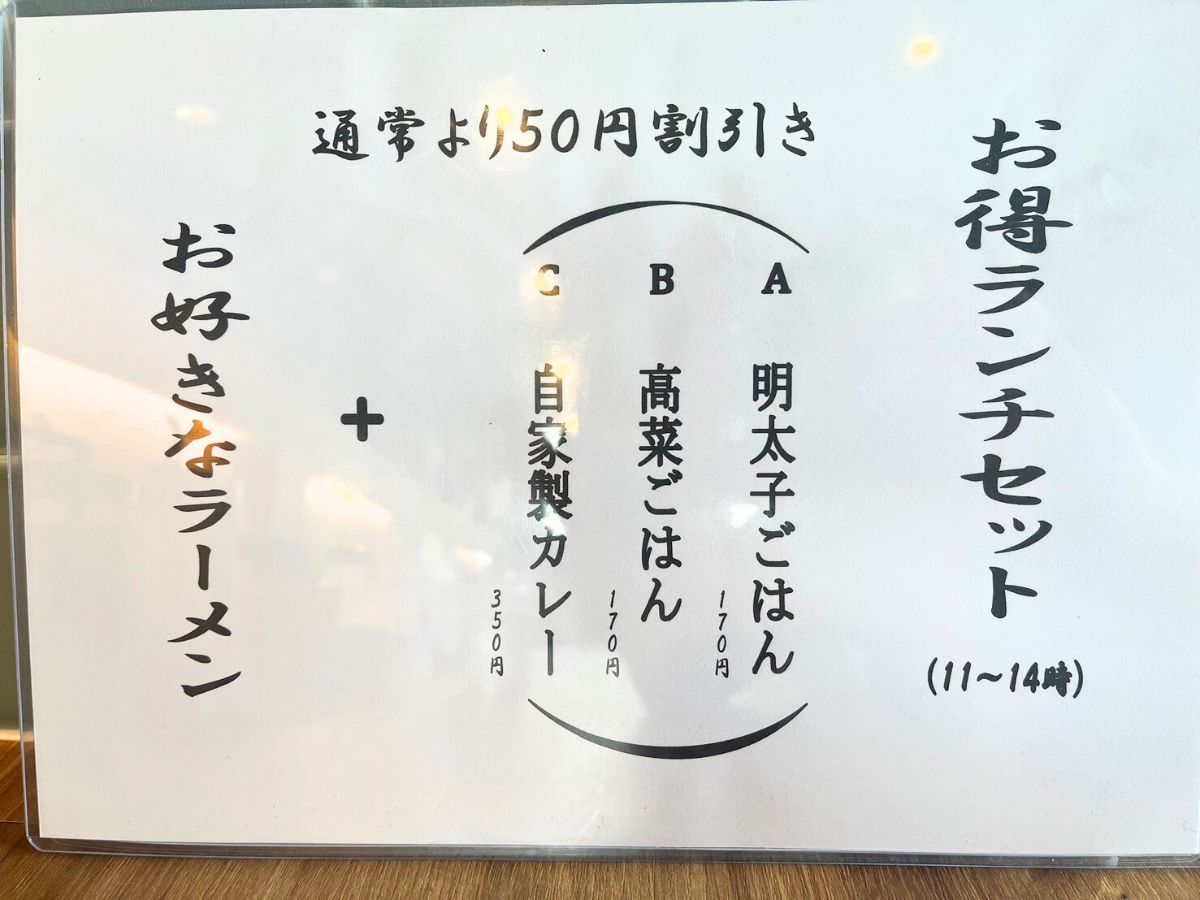 お得ランチセット
(11～14時)
通常より50円割引き
A 明太子ごはん
170円
B 高菜ごはん
170円
C 自家製カレー
350円
+
お好きなラーメン